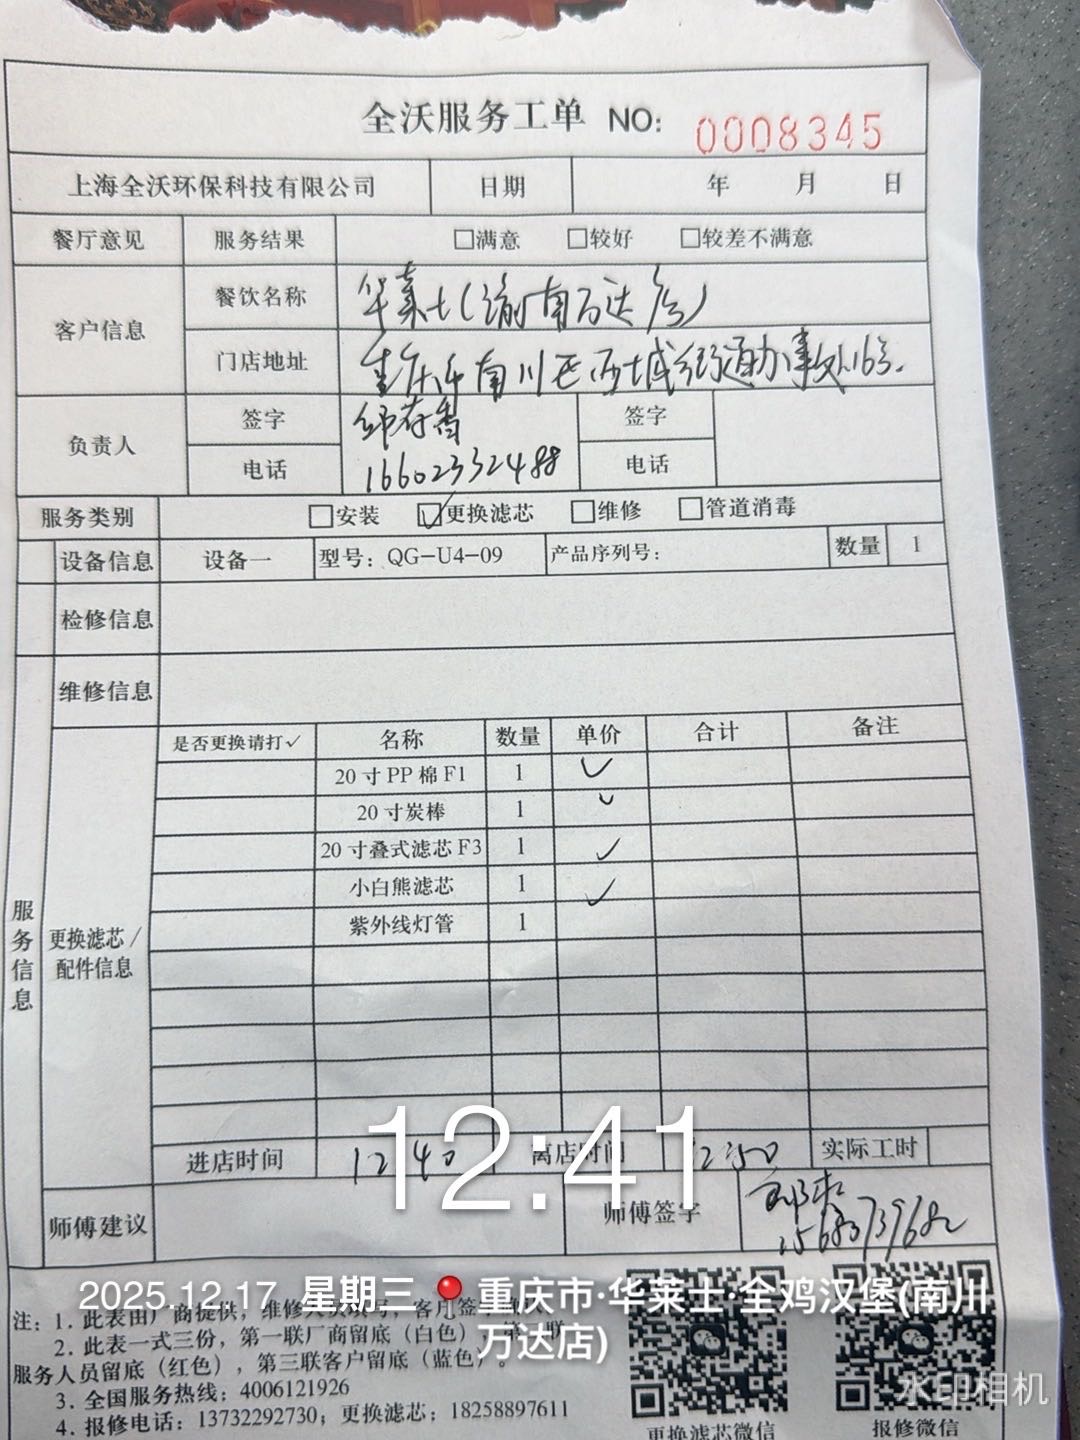 全沃服务工单 NO: 0008345
上海全沃环保科技有限公司 日期 年 月 日
餐厅意见 服务结果 □满意 □较好 □较差不满意
客户信息 餐饮名称 华莱士(渝南万达店)
门店地址 重庆市南川区西城街道办事处16号.
负责人 签字 签字
电话 16602332488 电话
服务类别 □安装 ☑更换滤芯 □维修 □管道消毒
设备信息 设备一 型号: QG-U4-09 产品序列号: 数量 1
检修信息
维修信息
服务信息
更换滤芯/
配件信息
是否更换请打✓ 名称 数量 单价 合计 备注
20寸PP棉F1 1 ✓
20寸炭棒 1 ✓
20寸叠式滤芯F3 1 ✓
小白熊滤芯 1 ✓
紫外线灯管 1
进店时间 12 40 离店时间 12:50 实际工时
12:41
师傅建议 师傅签字
2025.12.17 星期三 重庆市·华莱士·全鸡汉堡(南川
万达店)
注: 1. 此表由厂商提供,
2. 此表一式三份, 第一联厂商留底 (白色),
服务人员留底 (红色), 第三联客户留底 (蓝色)。
3. 全国服务热线: 4006121926
4. 报修电话: 13732292730; 更换滤芯: 18258897611
更换滤芯微信 报修微信
水印相机